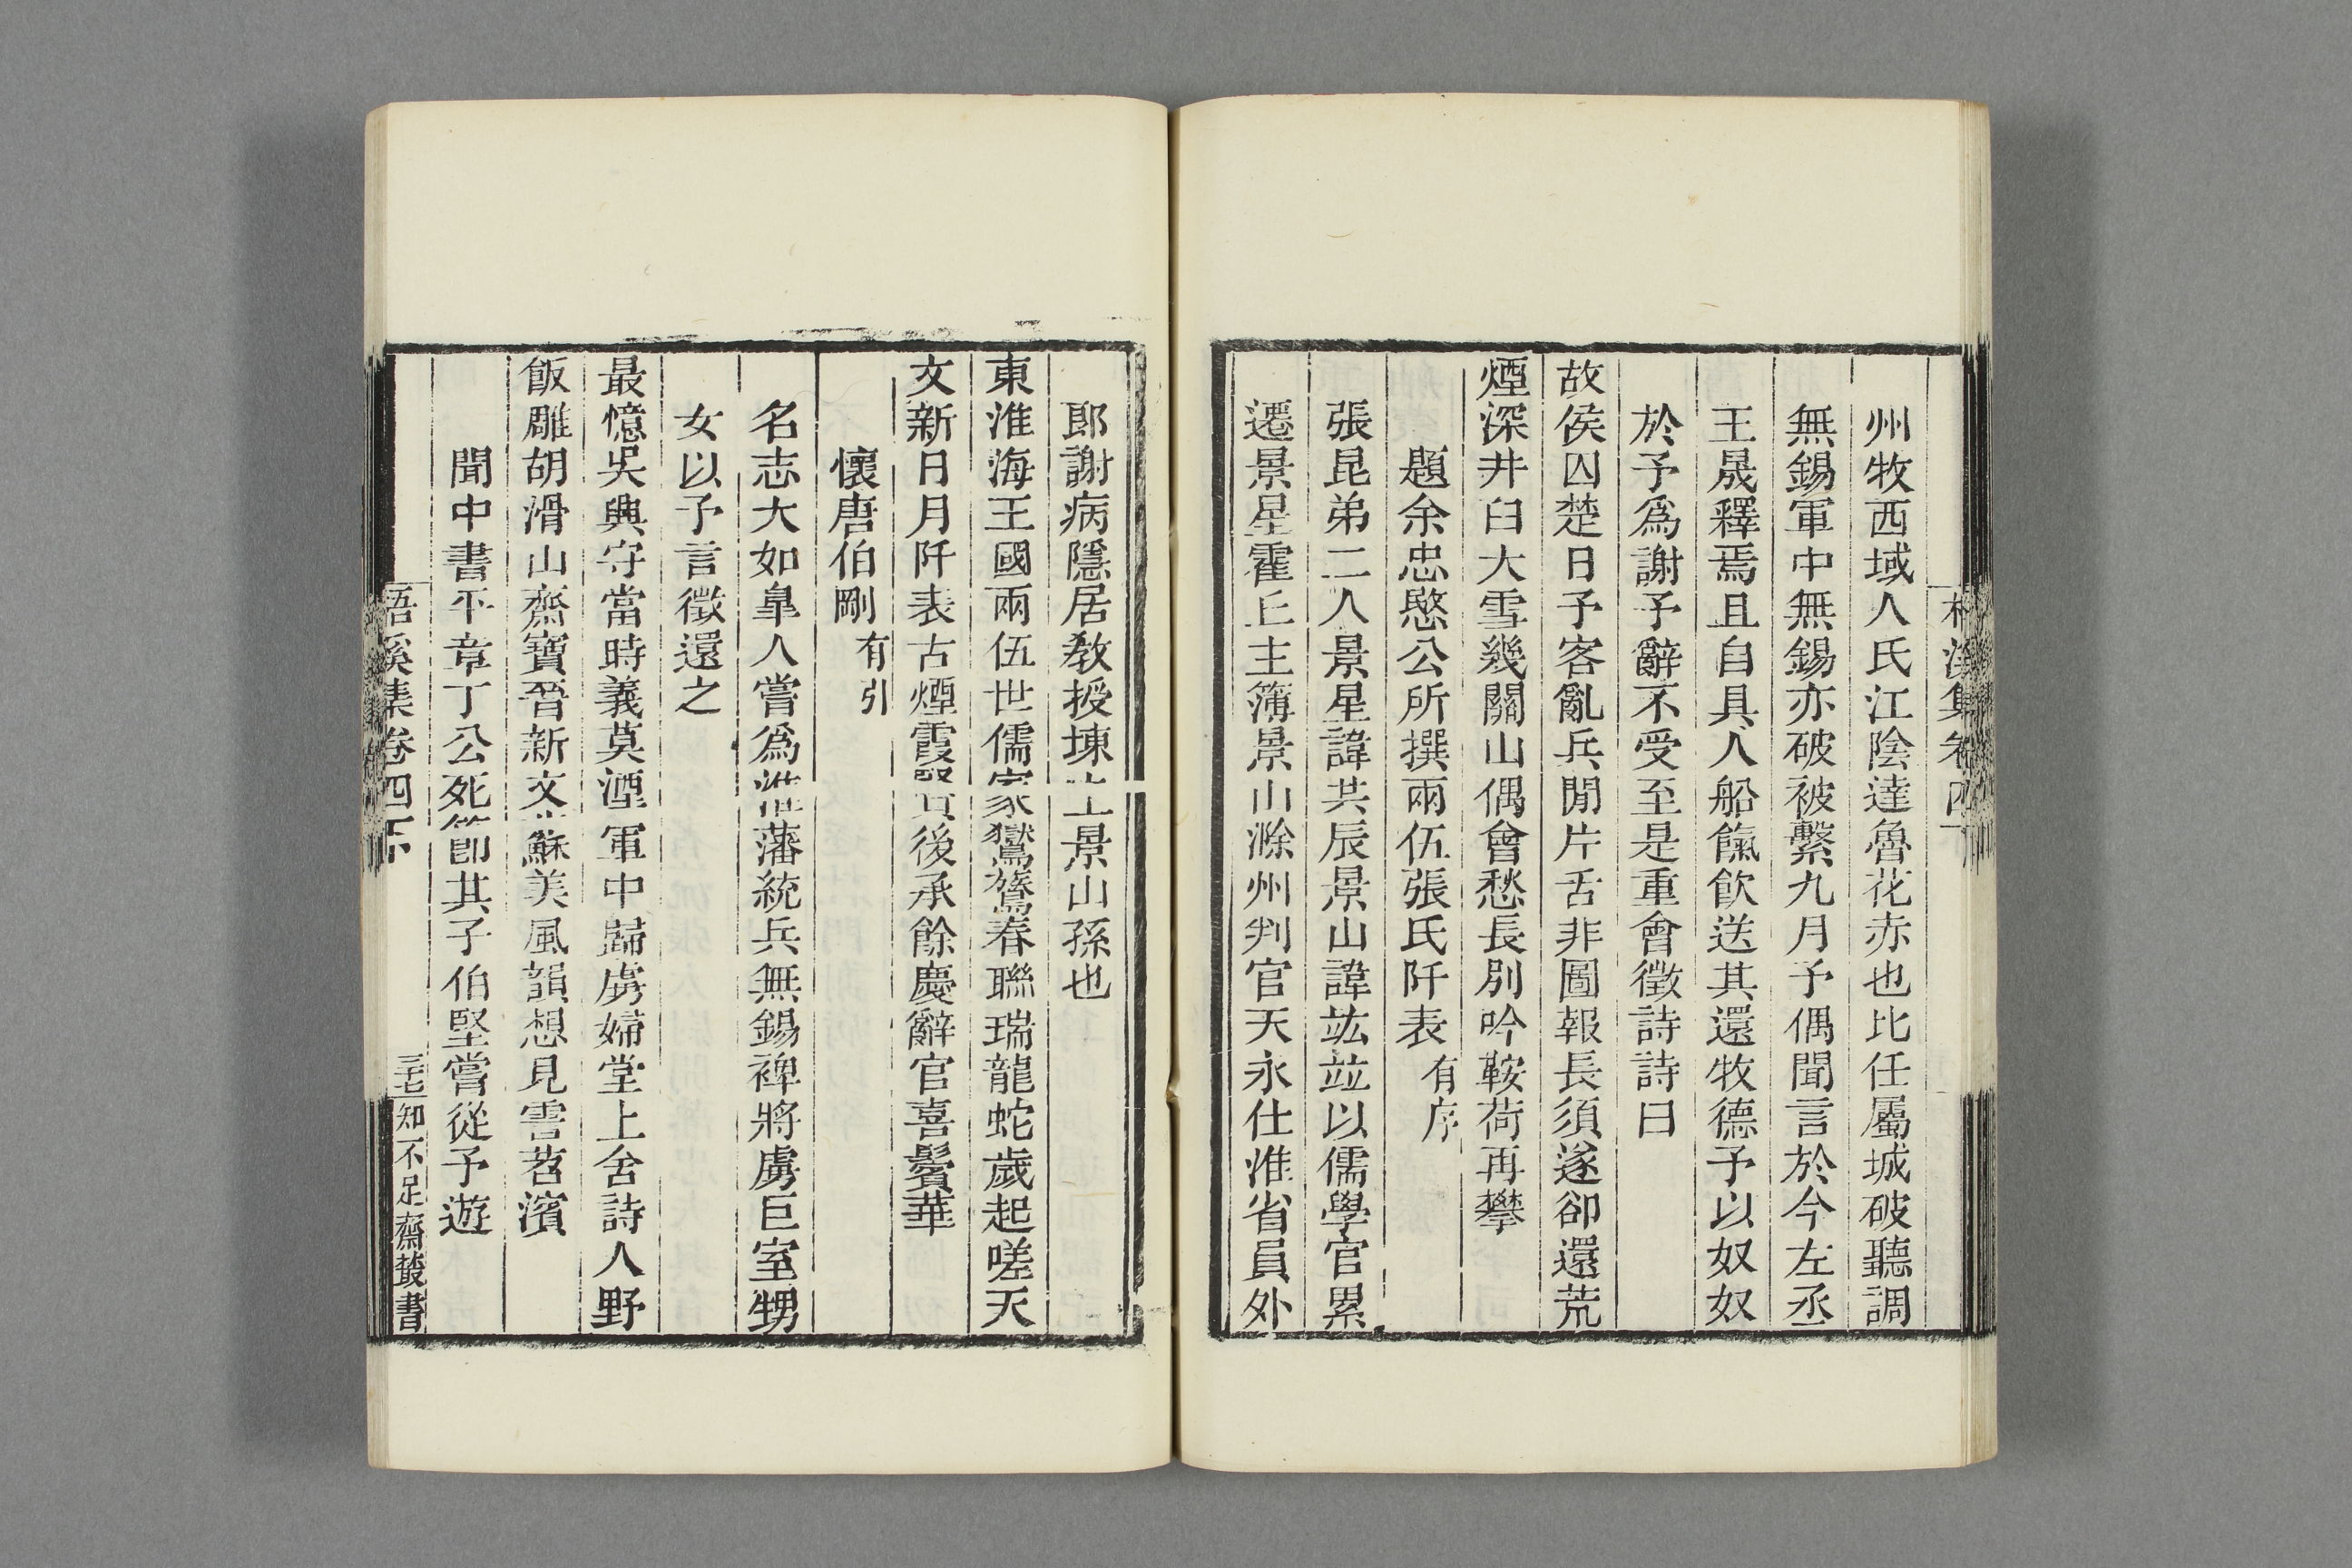 州牧西域人氏江陰達魯花赤也比任屬城破聽調
無錫軍中無錫亦破被繫九月予偶聞言於今左丞
王晟釋焉且自具人船餼飲送其還牧德予以奴奴
於予爲謝予辭不受至是重會徵詩詩曰
故侯囚楚日予客亂兵閒片舌非圖報長須遂卻還荒
煙深井臼大雪幾關山偶會愁長別吟鞍荷再攀
題余忠愍公所撰兩伍張氏阡表有序
張昆弟二人景星諱共辰景山諱竑並以儒學官累
遷景星霍丘主簿景山滁州判官天永仕淮省員外
郎謝病隱居敎授埬上景山孫也
東淮海王國兩伍世儒家鸑鷟春聯瑞龍蛇歲起嗟天
文新日月阡表古煙霞賢後承餘慶辭官喜鬢華
懷唐伯剛有引
名志大如臯人嘗爲淮藩統兵無錫裨將虜巨室甥
女以予言徵還之
最憶吳興守當時義莫湮軍中歸虜婦堂上舍詩人野
飯雕胡滑山齋寶晉新文蘇美風韻想見霅苕濱
聞中書平章丁公死節其子伯堅嘗從予遊
梧溪集卷四下
三十七
知不足齋叢書